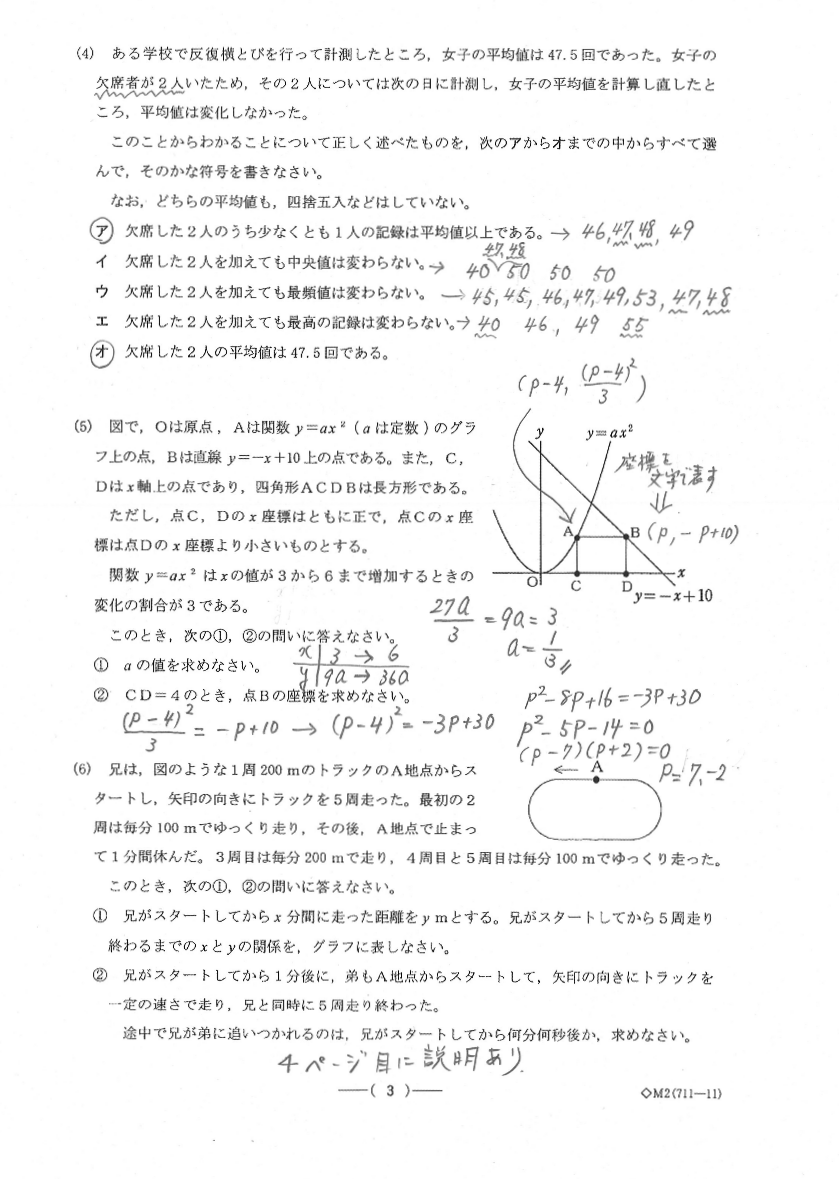 (4) ある学校で反復横とびを行って計測したところ，女子の平均値は 47.5 回であった。女子の
欠席者が２人いたため，その２人については次の日に計測し，女子の平均値を計算し直したと
ころ，平均値は変化しなかった。
このことからわかることについて正しく述べたものを，次のアからオまでの中からすべて選
んで，そのかな符号を書きなさい。
なお，どちらの平均値も，四捨五入などはしていない。
ア 欠席した２人のうち少なくとも１人の記録は平均値以上である。→ 46, 47, 48, 49
47, 48
イ 欠席した２人を加えても中央値は変わらない。→ 40 50 50 50
ウ 欠席した２人を加えても最頻値は変わらない。→ 45, 45, 46, 47, 49, 53, 47, 48
エ 欠席した２人を加えても最高の記録は変わらない。→ 40 46, 49 55
オ 欠席した２人の平均値は 47.5 回である。
(P-4, (P-4)²/3)
(5) 図で，Oは原点，Aは関数 y=ax²（aは定数）のグラ
フ上の点，Bは直線 y=-x+10 上の点である。また，C，
Dはx軸上の点であり，四角形ACDBは長方形である。
ただし，点C，Dのx座標はともに正で，点Cのx座
標は点Dのx座標より小さいものとする。
関数 y=ax² はxの値が3から6まで増加するときの
変化の割合が3である。
このとき，次の①，②の問いに答えなさい。
① aの値を求めなさい。
x 3 → 6
y 9a → 36a
27a/3 = 9a = 3
a = 1/3
② CD=4のとき，点Bの座標を求めなさい。
(P-4)²/3 = -P+10 → (P-4)² = -3P+30
P²-8P+16=-3P+30
P²-5P-14=0
(P-7)(P+2)=0
P=7,-2
y
y=ax²
座標を
文字で表す
A
B (P, -P+10)
O
C
D
x
y=-x+10
(6) 兄は，図のような１周 200 mのトラックのA地点からス
タートし，矢印の向きにトラックを５周走った。最初の２
周は毎分 100 mでゆっくり走り，その後，A地点で止まっ
て１分間休んだ。３周目は毎分 200 mで走り，４周目と５周目は毎分 100 mでゆっくり走った。
← A
このとき，次の①，②の問いに答えなさい。
① 兄がスタートしてからx分間に走った距離をy mとする。兄がスタートしてから５周走り
終わるまでのxとyの関係を，グラフに表しなさい。
② 兄がスタートしてから１分後に，弟もA地点からスタートして，矢印の向きにトラックを
一定の速さで走り，兄と同時に５周走り終わった。
途中で兄が弟に追いつかれるのは，兄がスタートしてから何分何秒後か，求めなさい。
4ページ目に説明あり
—( 3 )—
◇M2(711—11)